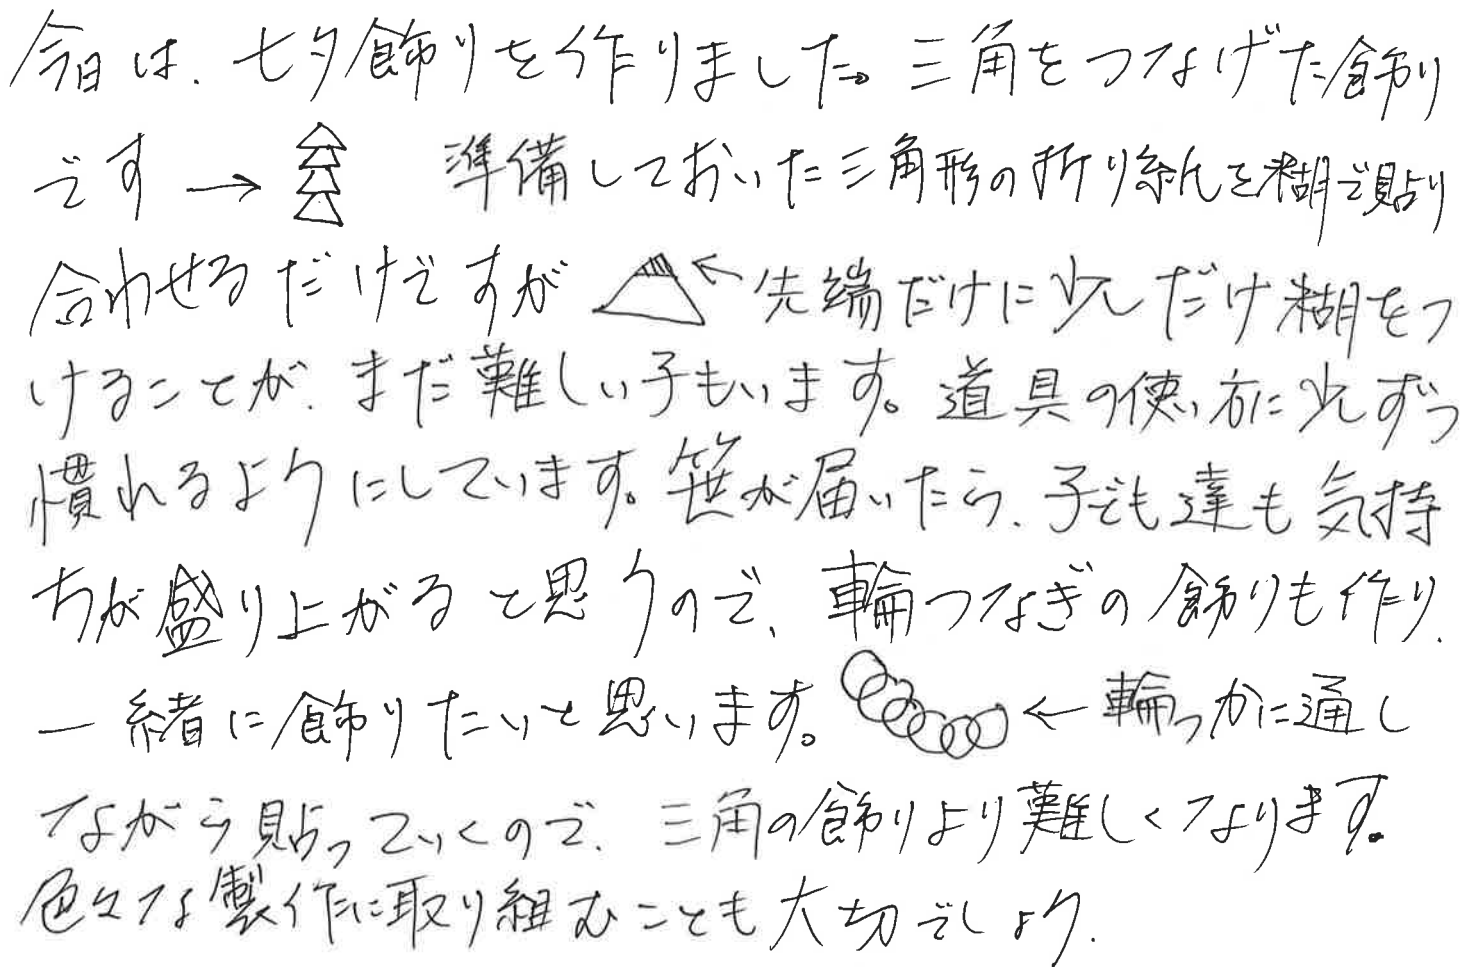 今日は、七夕飾りを作りました。三角をつなげた飾り
です → 準備しておいた三角形の折り紙を糊で貼り
合わせるだけですが ← 先端だけに少しだけ糊をつ
けることが、まだ難しい子もいます。道具の使い方に少しずつ
慣れるようにしています。笹が届いたら、子ども達も気持
ちが盛り上がると思うので、輪つなぎの飾りも作り、
一緒に飾りたいと思います。 ← 輪っかに通し
ながら貼っていくので、三角の飾りより難しくなります。
色々な製作に取り組むことも大切でしょう。